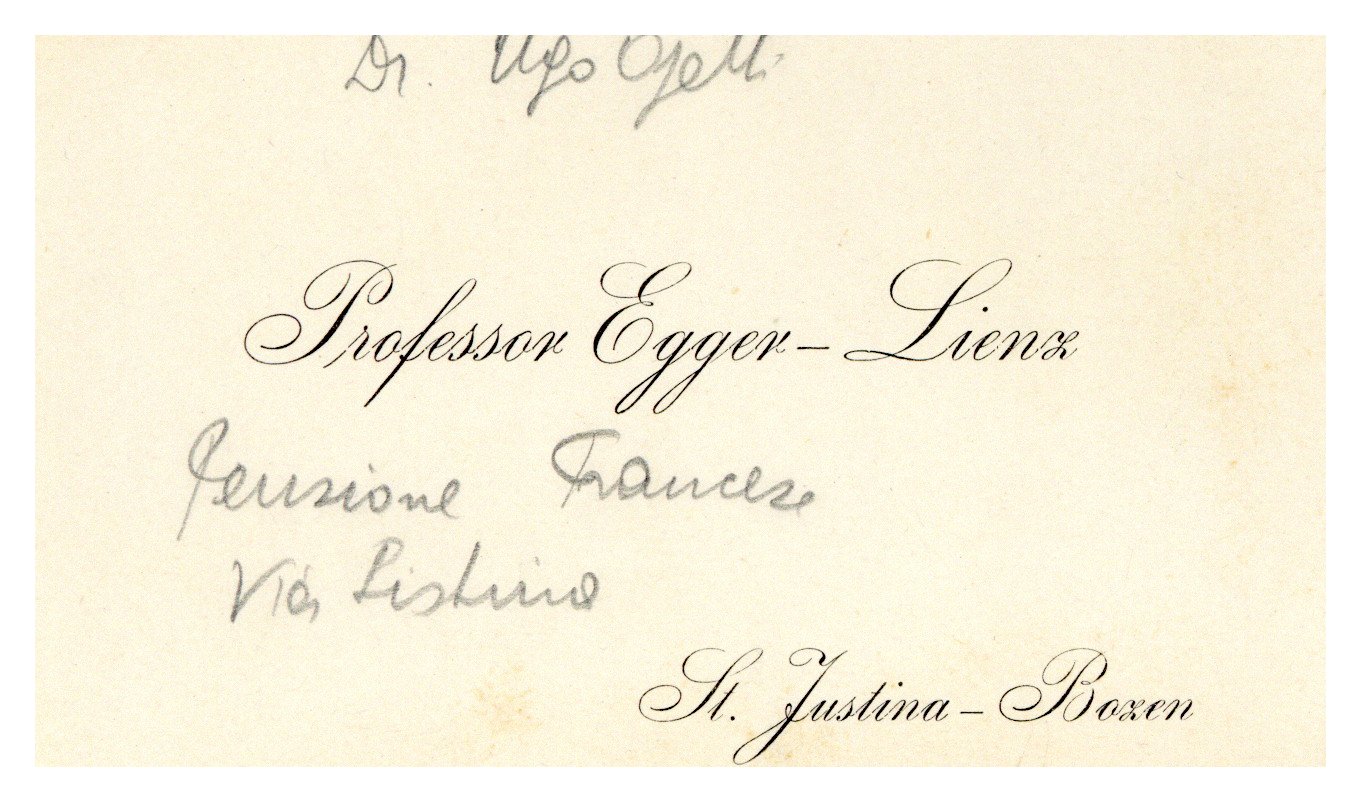 Dr. Ugo Ojetti
Professor Egger–Lienz
Pensione Francese
Via Sistina
St. Justina – Bozen